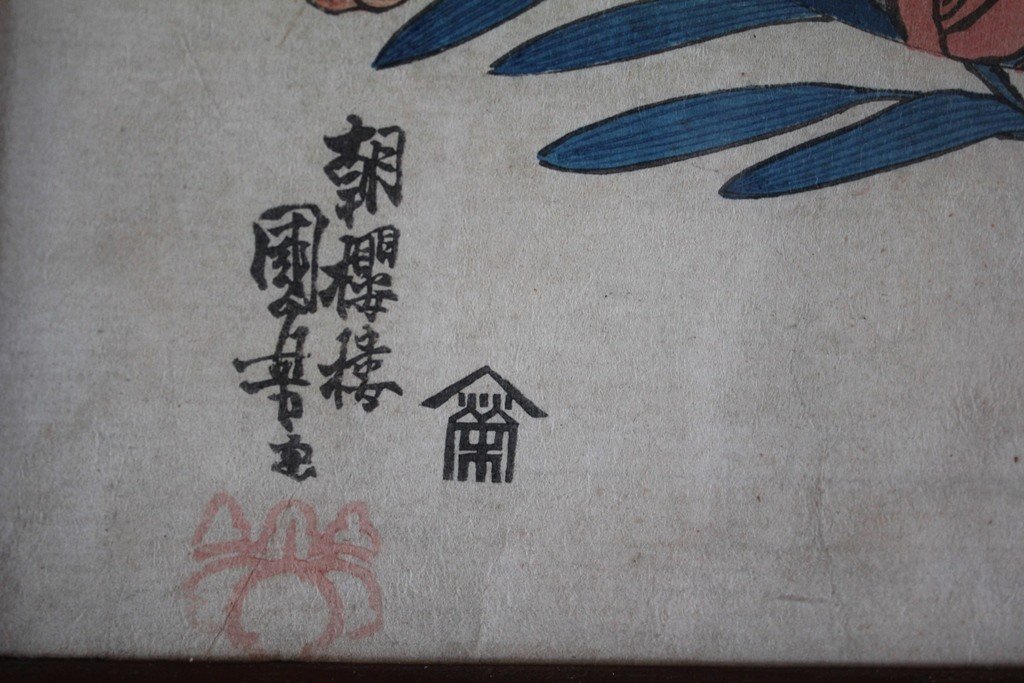 朝櫻樓
國芳画